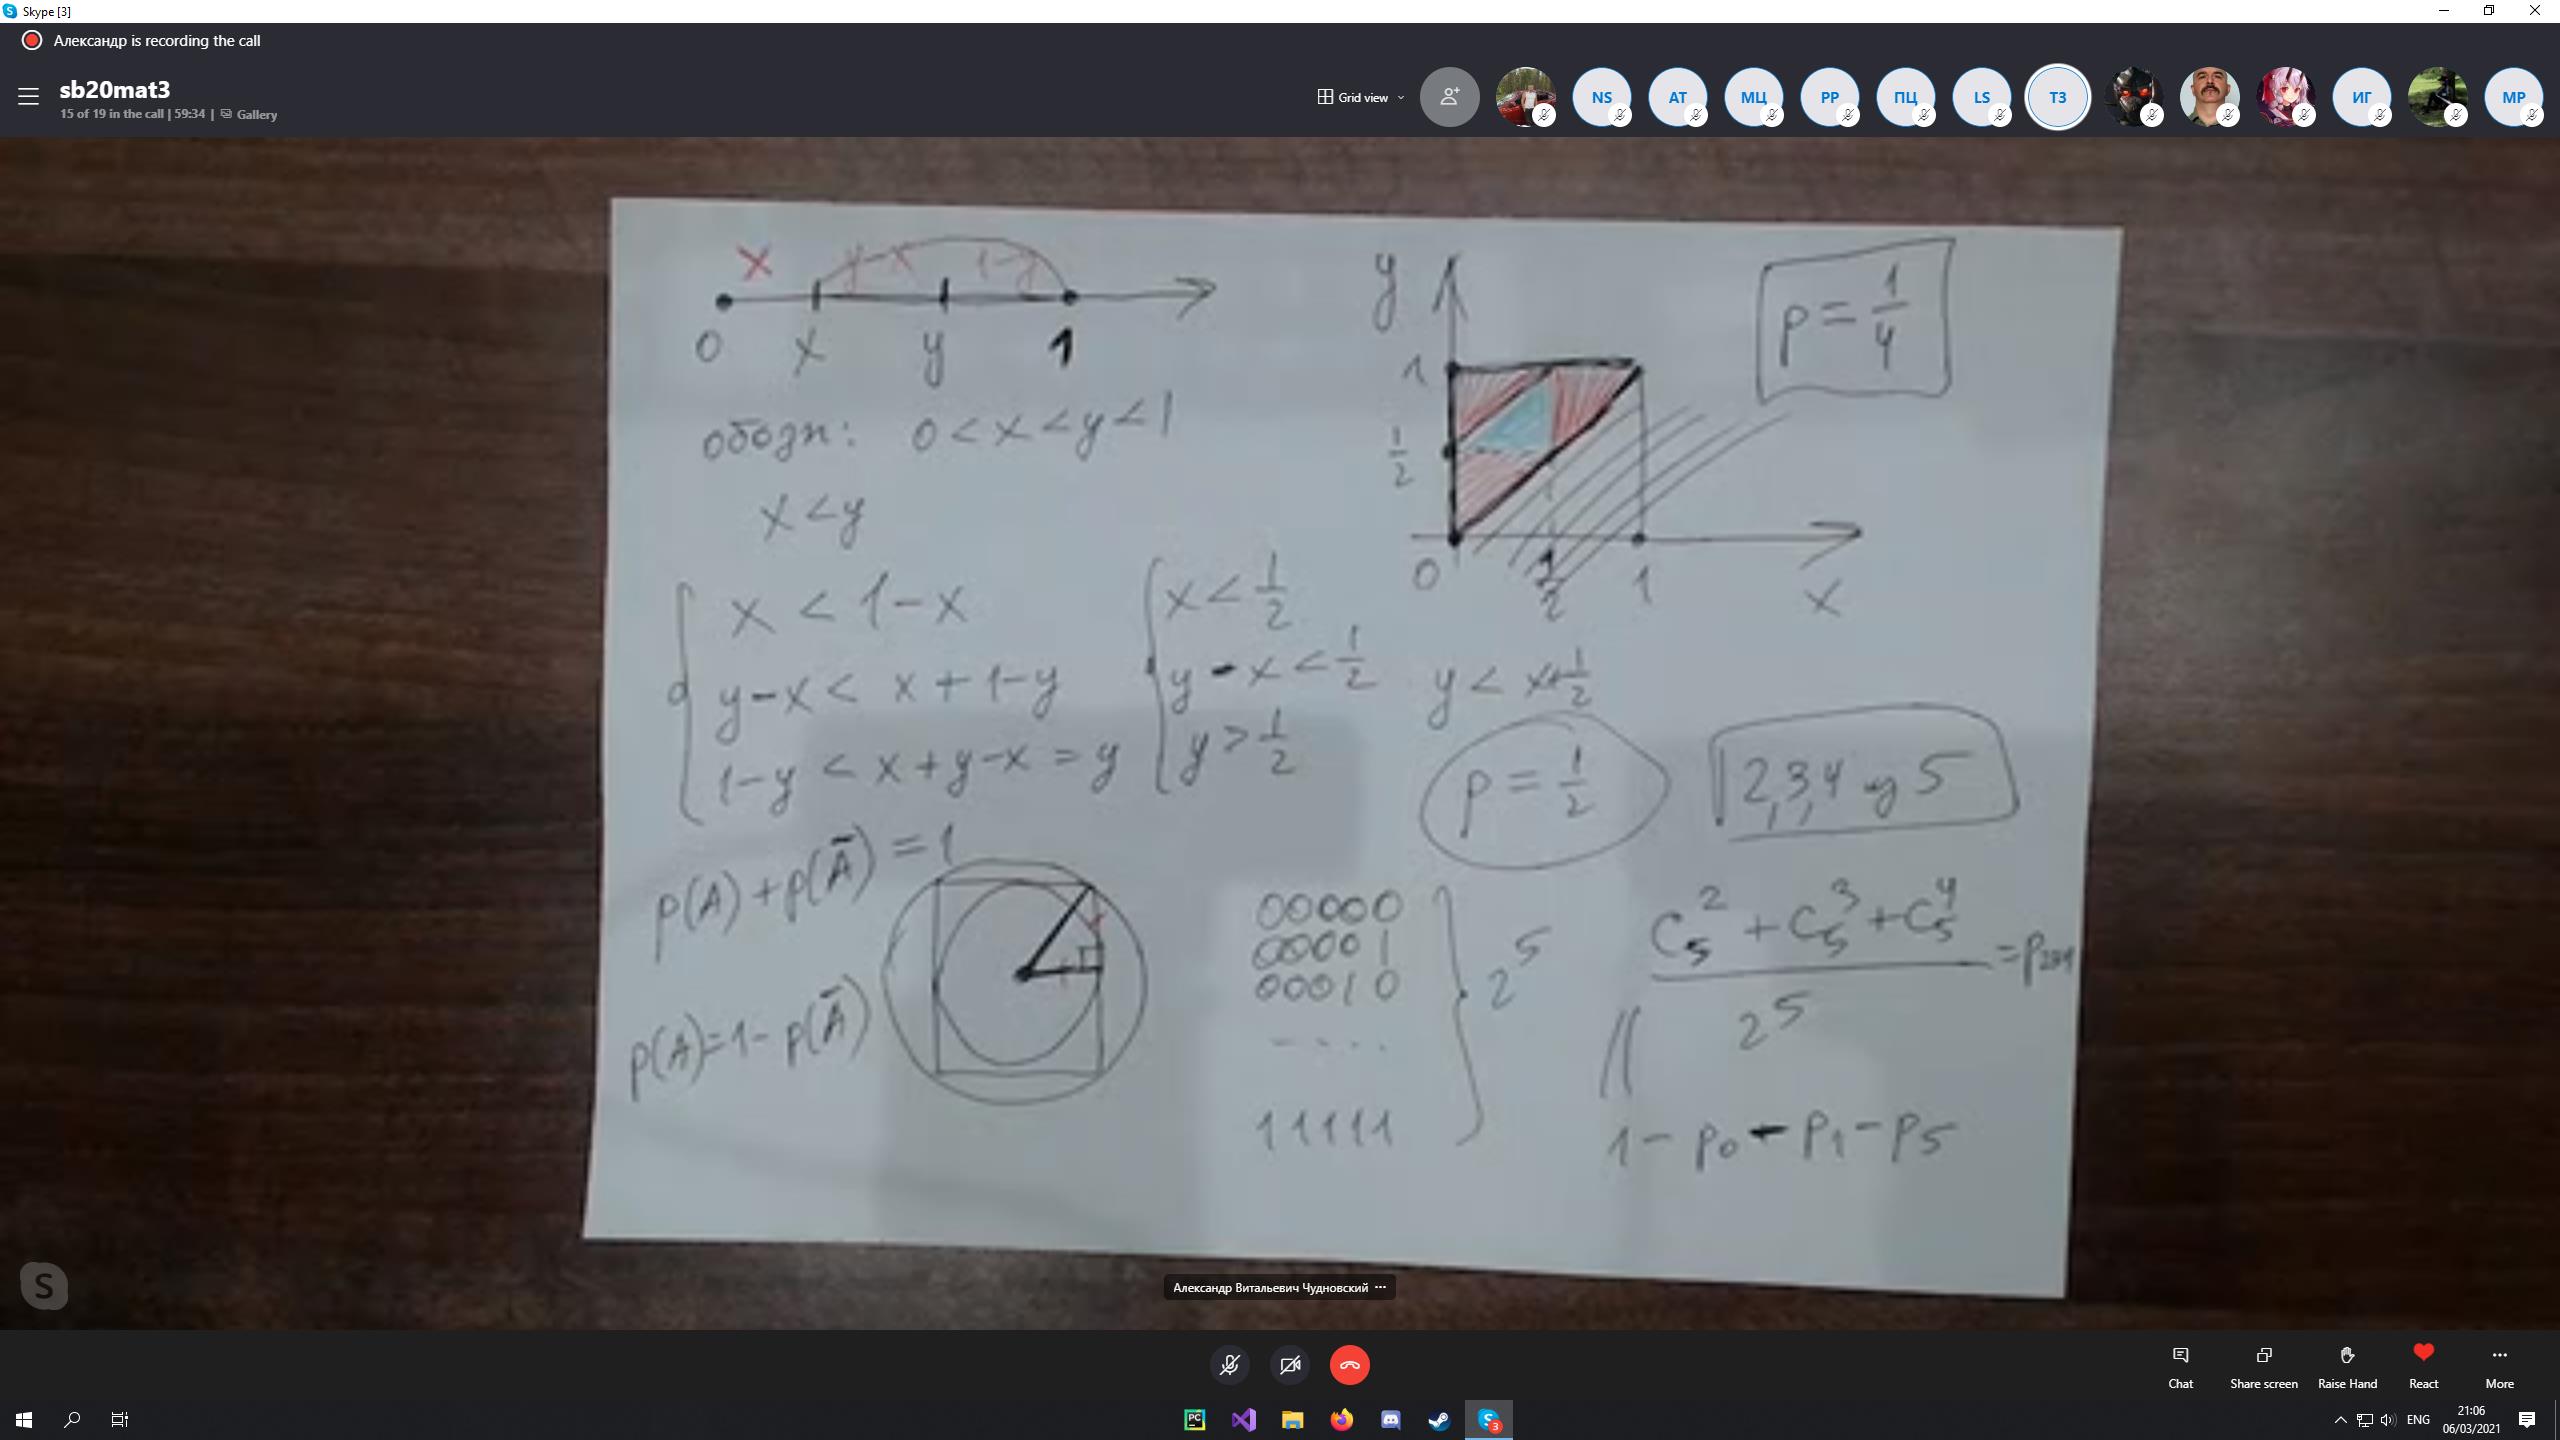 Skype [3]
Александр is recording the call
sb20mat3
15 of 19 in the call | 59:34 | Gallery
Grid view
NS
AT
МЦ
PP
ПЦ
LS
ТЗ
ИГ
MP
x y-x 1-y
0 x y 1
обозн: 0 < x < y < 1
x < y
x < 1-x
y-x < x+1-y
1-y < x+y-x = y
x < 1/2
y - x < 1/2 y < x+1/2
y > 1/2
y
1
1/2
0 1/2 1 x
p = 1/4
p = 1/2
2,3,4 из 5
p(A) + p(Ā) = 1
p(A) = 1 - p(Ā)
00000
00001
00010
- - - -
11111
2^5
C_5^2 + C_5^3 + C_5^4
2^5
= p
1 - p_0 - p_1 - p_5
Александр Витальевич Чудновский
Chat
Share screen
Raise Hand
React
More
ENG
21:06
06/03/2021